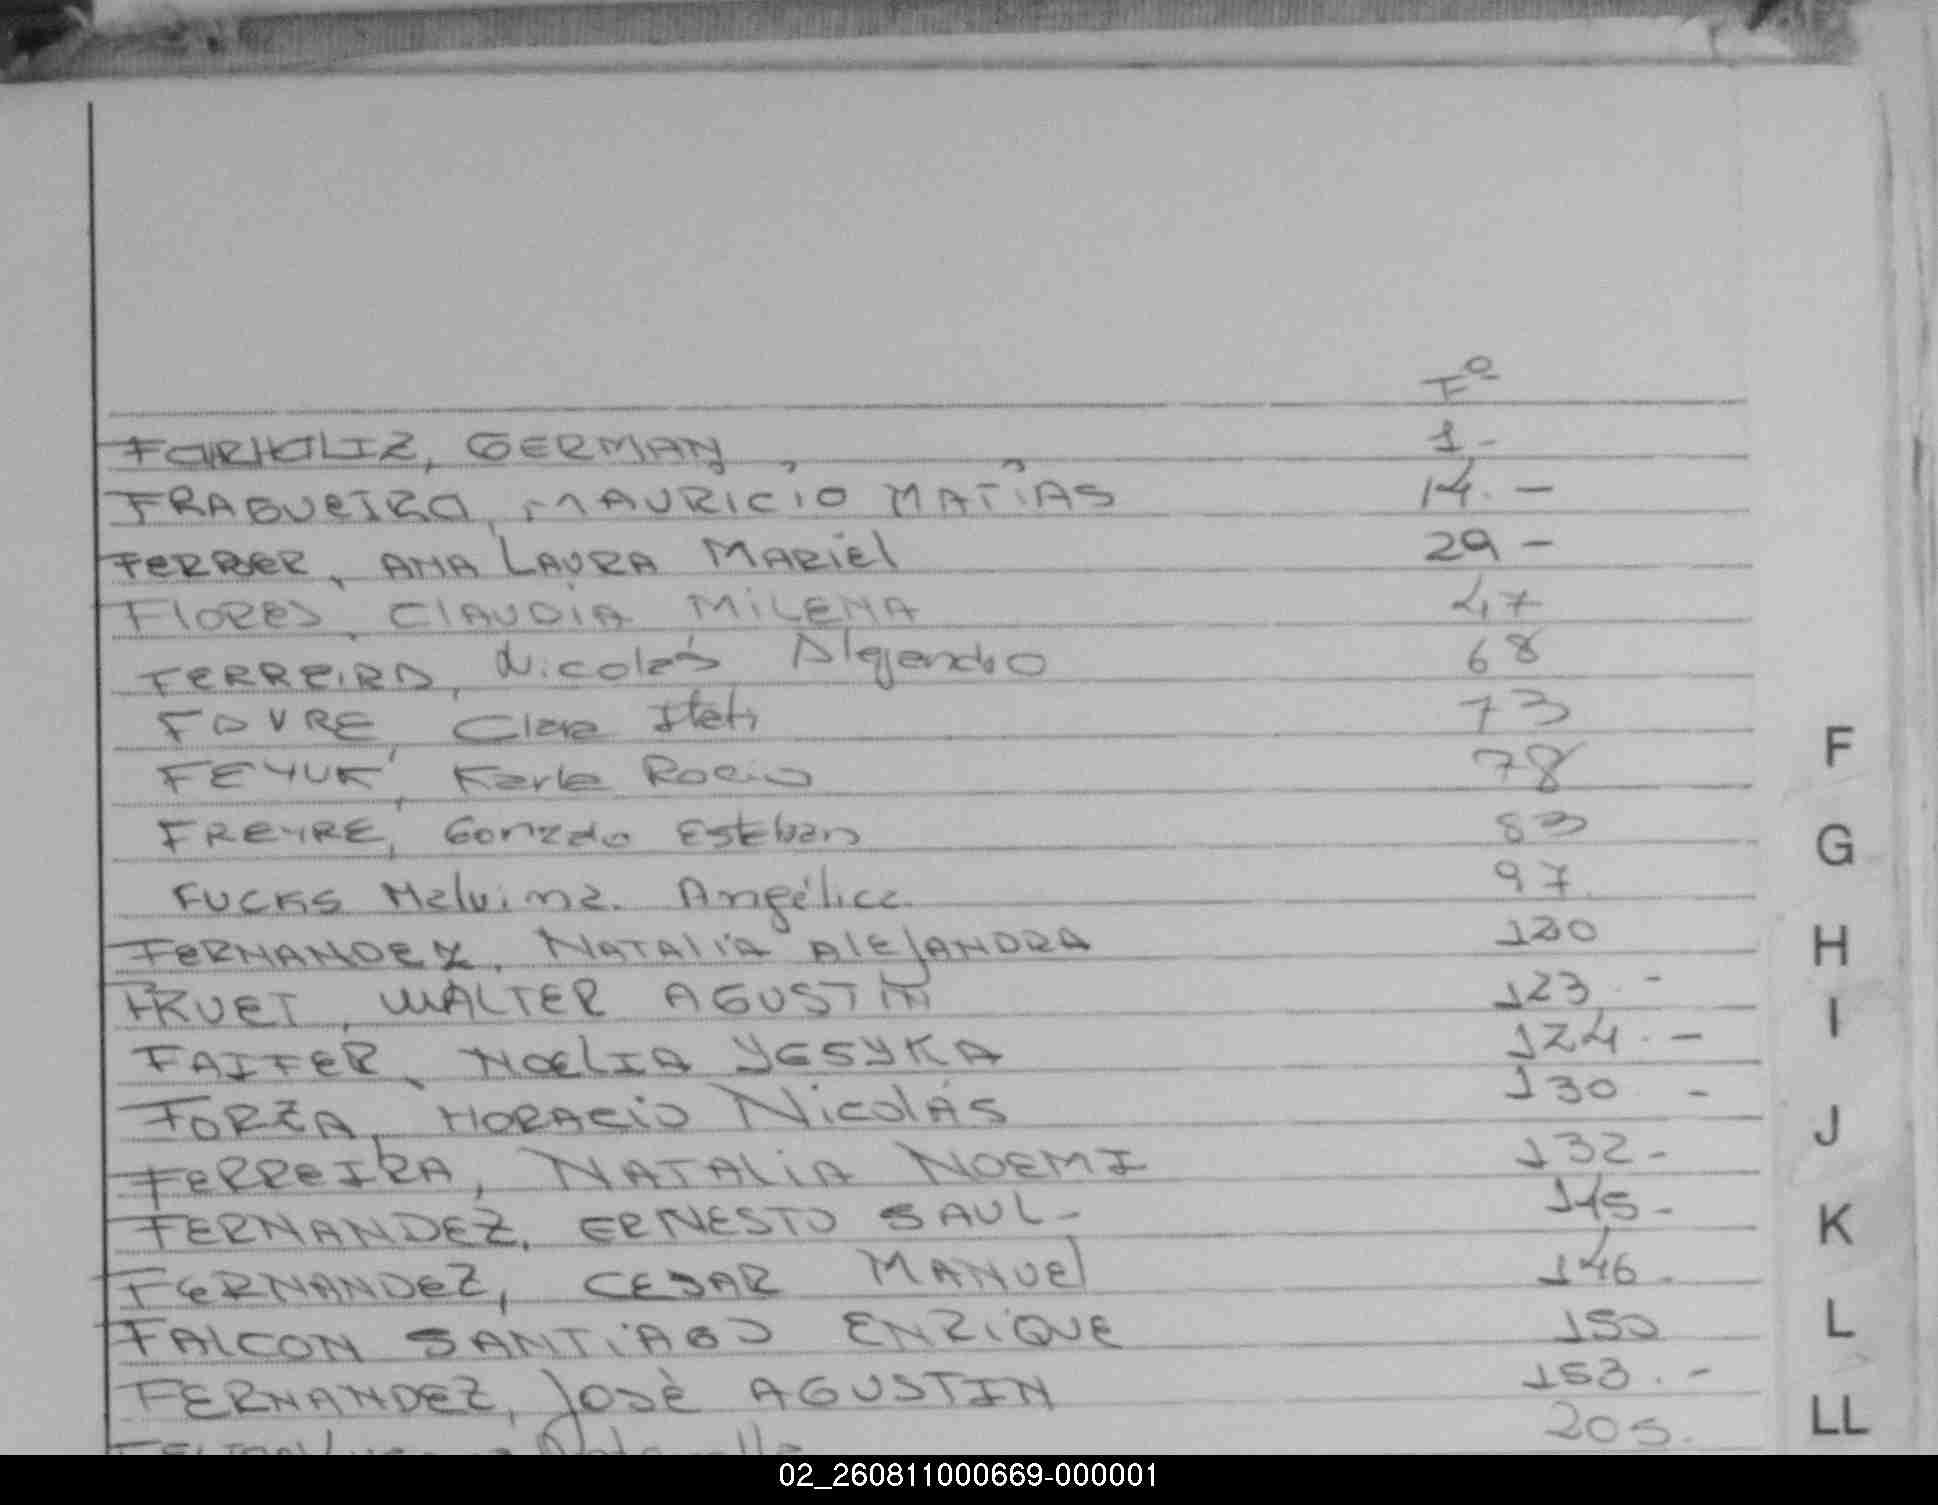 Fº
FARHALIZ, GERMAN 1.-
FRAGUEIRO, MAURICIO MATIAS 14.-
FERBER, ANA LAURA MARIEL 29-
FLORES, CLAUDIA MILENA 47
FERREIRA, Nicolás Alejandro 68
FAVRE, Clara Itatí 73
FEYUK, Karla Rocio 78
FREYRE, Gonzalo Esteban 83
FUCKS Malvina. Angélica. 97.
FERNANDEZ, NATALIA ALEJANDRA 120
FRUET, WALTER AGUSTIN 123.-
FAIFER, NOELIA YESYKA 124.-
FORZA, HORACIO Nicolás 130.-
FERREIRA, NATALIA NOEMI 132-
FERNANDEZ, ERNESTO SAUL- 145-
FERNANDEZ, CESAR MANUEL 146.
FALCON SANTIAGO ENRIQUE 150
FERNANDEZ, JOSÈ AGUSTIN 153.-
205.
F
G
H
I
J
K
L
LL
02_260811000669-000001